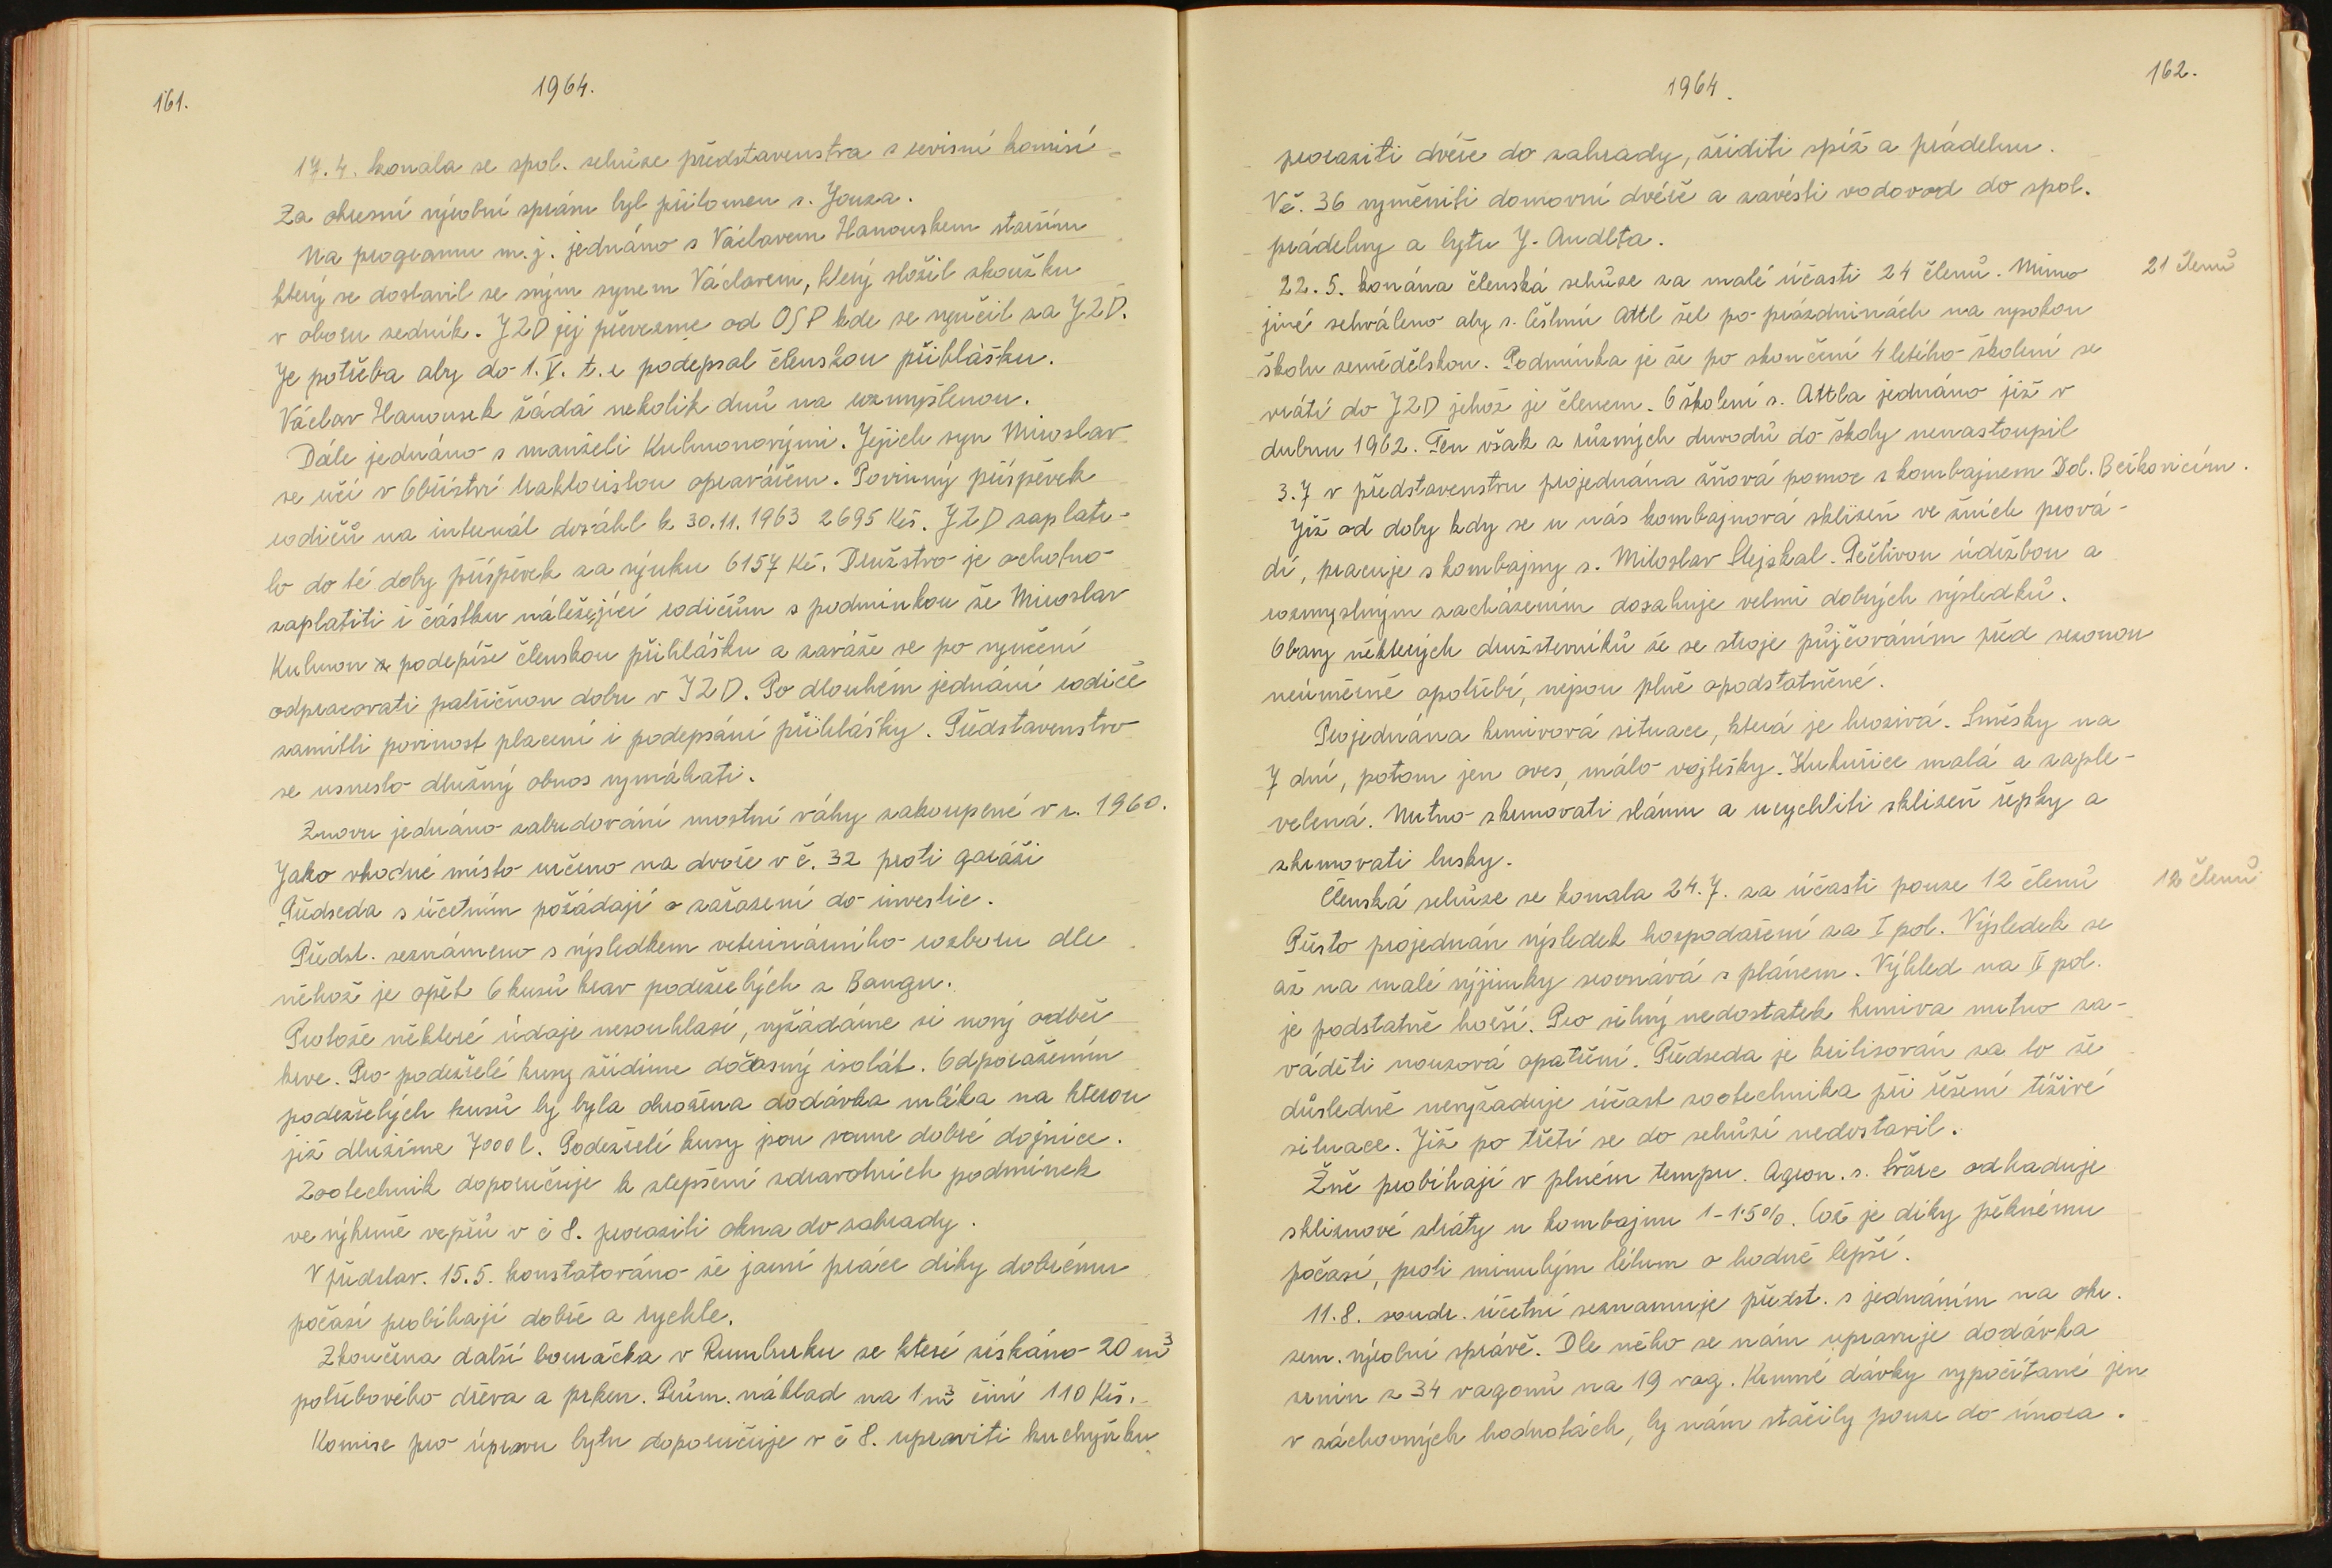 161.
1964.
17.4. konala se spol. schůze představenstva s revisní komisí
Za okresní výrobní správu byl přítomen s. Jouza.
Na programu m.j. jednáno s Václavem Hanouskem starším
který se dostavil se svým synem Václavem, který složil zkoužku
v oboru zedník. JZD jej převezme od OSP kde se vyučil za JZD.
Je potřeba aby do 1.V. t.r podepsal členskou přihlášku.
Václav Hanousek žádá nekolik dnů na rozmyšlenou.
Dále jednáno s manželi Kulmonovými. Jejich syn Miroslav
se učí v Obříství traktoristou opravářem. Povinný příspěvek
rodičů na internát dosáhl k 30.11.1963 2695 Kčs. JZD zaplati-
lo do té doby příspěvek za výuku 6157 Kč. Družstvo je ochotno
zaplatiti i částku náležející rodičům s podmínkou že Miroslav
Kulmon podepíše členskou přihlášku a zaváže se po vyučení
odpracovati patřičnou dobu v JZD. Po dlouhém jednání rodiče
zamítli povinost placení i podepsání přihlášky. Představenstvo
se usneslo dlužný obnos vymáhati.
Znovu jednáno zabudování mostní váhy zakoupené v r. 1960.
Jako vhodné místo určeno na dvoře v č. 32 proti garáži
Předseda s účetním požádají o zařazení do investic.
Předst. seznámeno s výsledkem veterinárního rozboru dle
něhož je opět 6 kusů krav podezřelých z Bangu.
Protože některé údaje nesouhlasí, vyžádáme si nový odběr
krve. Pro podezřelé kusy zřídíme dočasný isolát. Odporažením
podezřelých kusů by byla ohrožena dodávka mléka na kterou
již dlužíme 7000 l. Podezřelé kusy jsou vesme dobré dojnice.
Zootechnik doporučuje k zlepšení zdravotních podmínek
ve výkrmě vepřů v č 8. prorazili okna do zahrady.
V představ. 15.5. konstatováno že jarní práce díky dobrému
počasí probíhají dobře a rychle.
Zkončena další bouračka v Rumburku ze které získáno 20 m³
potřebového dřeva a prken. Prům. náklad na 1 m³ činí 110 Kčs.
Komise pro úpravu bytu doporučuje v č 8. upraviti kuchyňku
1964.
162.
proraziti dvéře do zahrady, zříditi spíž a prádelnu.
V č. 36 vyměniti domovní dvéře a zavésti vodovod do spol.
prádelny a bytu J. Audlta.
22.5. konána členská schůze za malé účasti 24 členů. Mimo
21 členů
jiné schváleno aby s. Čestmír Attl šel po prázdninách na vysokou
školu zemědělskou. Podmínka je že po skončení 4 letého školení se
vrátí do JZD jehož je členem. O školení s. Attla jednáno již v
dubnu 1962. Ten však z různých duvodů do školy nenastoupil
3.7 v představenstvu projednána žňová pomoc s kombajnem Dol. Beřkovicím.
Již od doby kdy se u nás kombajnová sklizeň ve žních prová-
dí, pracuje s kombajny s. Miloslav Stejskal. Pečlivou údržbou a
rozmyslným zacházením dosahuje velmi dobrých výsledků.
Obavy některých družsterníků že se stroje půjčováním před sezonou
neúměrně opotřebí, nejsou plně opodstatněné.
Projednána krmivová situace, která je hrozivá. Směsky na
7 dní, potom jen oves, málo vojtěšky. Kukuřice malá a zaple-
velená. Nutno zkrmovati slámu a urychliti sklizeň řepky a
zkrmovati lusky.
Členská schůze se konala 24.7. za účasti pouze 12 členů
12 členů
Přesto projednán výsledek hospodaření za I pol. Výsledek se
až na malé výjimky srovnává s plánem. Výhled na II pol.
je podstatně horší. Pro silný nedostatek krmiva nutno za-
váděti nouzová opatření. Předseda je kritisován za to že
důsledně nevyžaduje účast zootechnika při řešení tíživé
situace. Již po třetí se do schůzí nedostavil.
Žně probíhají v plném tempu. Agron. s. Svárc odhaduje
sklizňové ztráty u kombajnu 1–1·5%. Což je díky pěknému
počasí, proti minulým létům o hodně lepší.
11.8. soudr. účetní seznamuje předst. s jednáním na okr.
zem. výrobní správě. Dle něho se nám upravuje dodávka
zrnin z 34 vagonů na 19 vag. Krmné dávky vypočítané jen
v záchovných hodnotách, by nám stačily pouze do února.